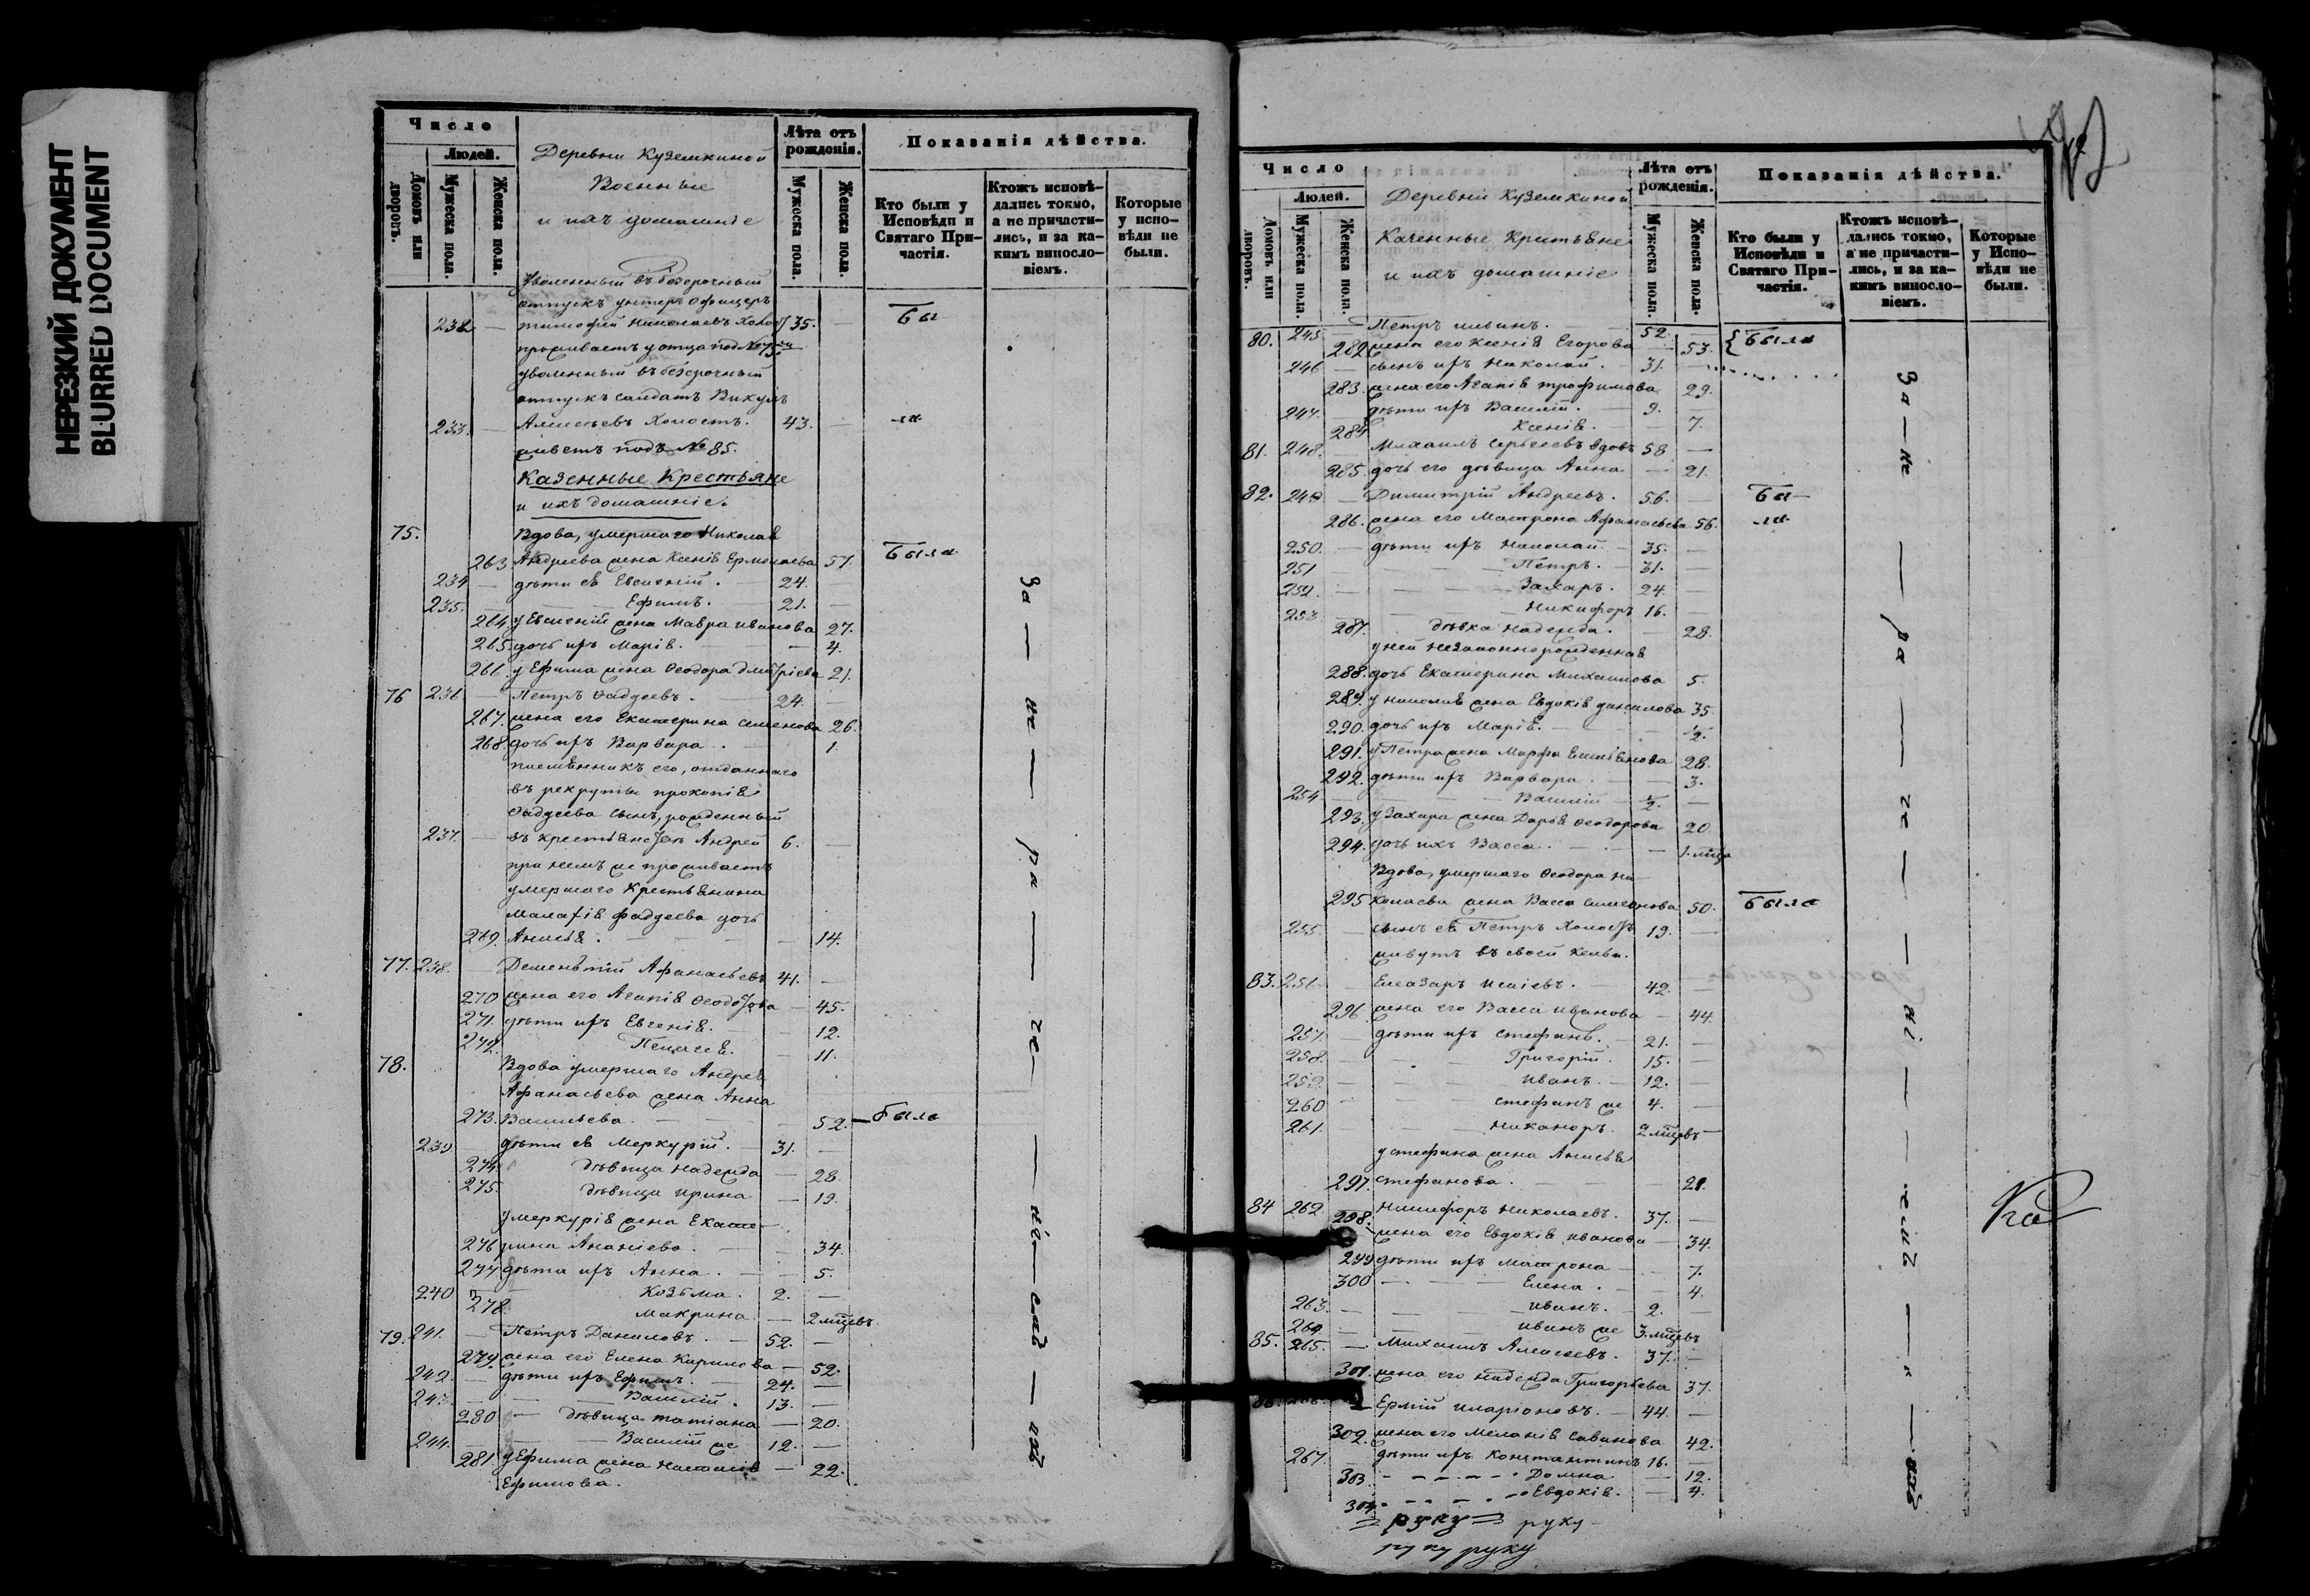 НЕРЕЗКИЙ ДОКУМЕНТ
BLURRED DOCUMENT
Число
Людей.
Домовъ или дворовъ.
Мужеска пола.
Женска пола.
Деревни Куземкиной
Военные
и ихъ домашніе
Лѣта отъ рожденія.
Мужеска пола.
Женска пола.
Показанія дѣйства.
Кто были у Исповѣди и Святаго Причастія.
Ктожъ исповѣдались токмо, а не причастились, и за какимъ винословіемъ.
Которые у исповѣди не были.
Уволенный въ безсрочный
отпускъ унтеръ офицеръ
232. — Тимофей Николаевъ Холос 35. — Бы
проживаетъ у отца под №75
уволенный въ безсрочный
отпускъ солдатъ Викулъ
233. — Алексѣевъ Холостъ. 43. — ли
живетъ подъ № 85.
Казенные Крестьяне
и ихъ домашніе.
75. Вдова, умершаго Николая
263 Андреева жена Ксенія Ермолаева 57. Была
234 — дѣти ея Евгеній. 24.
235. — Ефимъ. 21. —
264. у Евгенія жена Мавра Иванова 27.
265. дочь ихъ Марія. — 4.
266. у Ефима жена Ѳеодора Дмитріева 21.
76 236 — Петръ Ѳаддеевъ. 24. —
267. жена его Екатерина Семенова 26.
268. дочь ихъ Варвара. — 1.
племянникъ его, отданнаго
въ рекруты Прокопія
Ѳаддеева сынъ, рожденный
237. — въ крестьянствѣ Андрей 6. —
при немъ же проживаетъ
умершаго Крестьянина
Малафія Фаддеева дочь
269. Анисья. — 14.
77. 238. — Дементій Афанасьевъ 41. —
270 жена его Агапія Ѳеодорова — 45.
271. дѣти ихъ Евгенія. — 12.
272. Пелагея. — 11.
78. Вдова умершаго Андрея
Афанасьева жена Анна
273. Васильева. — 52. — была
239 — дѣти ея Меркурій. — 31. —
274. дѣвица Надежда — 28.
275. дѣвица Ирина — 19.
у Меркурія жена Екате-
276 рина Ананіева. — 34.
277 дѣти ихъ Анна. — 5.
240 — Козьма. 2. —
278. Макрина — 2 мѣсяцевъ
79. 241. — Петръ Даниловъ. — 52. —
279. жена его Елена Кирилова — 52.
242. — дѣти ихъ Ефимъ. — 24. —
243. — Василій. 13. —
280 — дѣвица Татіана — 20.
244. — Василій же 12. —
281. у Ефима жена Наталія — 22.
Ефимова.
За — не — ра — че — ні — емъ — ихъ
Число
Людей.
Домовъ или дворовъ.
Мужеска пола.
Женска пола.
Деревни Куземкиной
Казенные Кристьяне
и ихъ домашніе
Лѣта отъ рожденія.
Мужеска пола.
Женска пола.
Показанія дѣйства.
Кто были у Исповѣди и Святаго Причастія.
Ктожъ исповѣдались токмо, а не причастились, и за какимъ винословіемъ.
Которые у Исповѣди не были.
80. 245 — Петръ Ильинъ. 52. — Были
282 жена его Ксенія Егорова — 53.
246 — сынъ ихъ Николай. 31. —
283. жена его Агапія Трофимова 29.
247. — дѣти ихъ Василій. 9. —
284 Ксенія. — 7.
81. 248. — Михаилъ Сергѣевъ вдовъ 58 —
285. дочь его дѣвица Анна — 21.
82. 249 — Димитрій Андреевъ. 56. — Бы
286. жена его Матрона Афанасьева 56. ли
250. — дѣти ихъ Николай. 35. —
251 — Петръ. 31. —
252. — Захаръ. 24. —
253 — Никифоръ 16. —
287. дѣвка Надежда. — 28.
у ней незаконнорожденная
288. дочь Екатерина Михаилова 5.
289. у Николая жена Евдокія Данилова 35
290. дочь ихъ Марія. — ½.
291. у Петра жена Марфа Емельянова 28.
292. дѣти ихъ Варвара. — 3.
254 — Василій ½. —
293. у Захара жена Дарья Ѳеодорова 20
294. дочь ихъ Васса. — 1. мѣсяца
Вдова, умершаго Ѳеодора Ни-
295 колаева жена Васса Симеонова 50. Была
255. — сынъ ея Петръ Холостъ 19. —
живутъ въ своей кельи.
83. 256. — Елеазаръ Исаіевъ. 42. —
296. жена его Васса Иванова — 44.
257. — дѣти ихъ Стефанъ. 21. —
258. — Григорій. 15. —
259. — Иванъ. — 12. —
260 — Стефанъ же 4. —
261. — Никаноръ. 2 мѣсяцевъ —
у Стефана жена Анисья
297. Стефанова. — 21.
84 262. — Никифоръ Николаевъ. 37. —
298. жена его Евдокія Иванова — 34.
299 дѣти ихъ Матрона — 7.
300 — Елена. — 4.
263. — Иванъ. 2. —
264. — Иванъ же 3. мѣсяцевъ
85. 265. — Михаилъ Алексѣевъ. 37. —
301. жена его Надежда Григорьева 37.
86. 266. Ермій Иларіоновъ. — 44. —
302. жена его Меланія Савинова 42.
267 — дѣти ихъ Константинъ 16. —
303 — Домна — 12.
304. — Евдокія. — 4.
За — не — ра — че — ні — емъ — ихъ
руку руку
руку